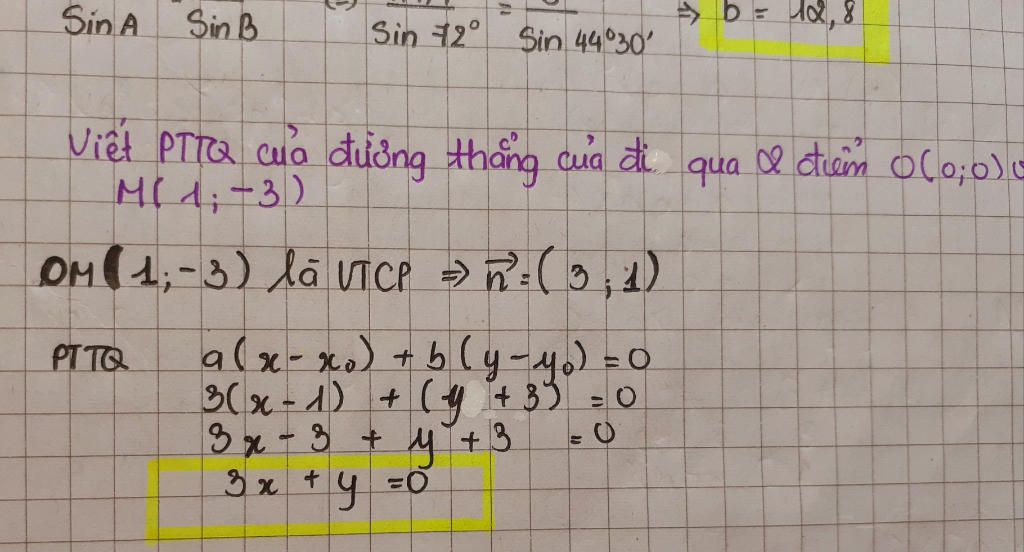 Sin A Sin B (=) Sin 72° = Sin 44°30' => b = 12,8
Viết PTTQ của đường thẳng của đi qua 2 điểm O(0;0)
M(1;-3)
OM(1;-3) là VTCP => n⃗ = (3;1)
PTTQ a(x - x₀) + b(y - y₀) = 0
3(x - 1) + (y + 3) = 0
3x - 3 + y + 3 = 0
3x + y = 0